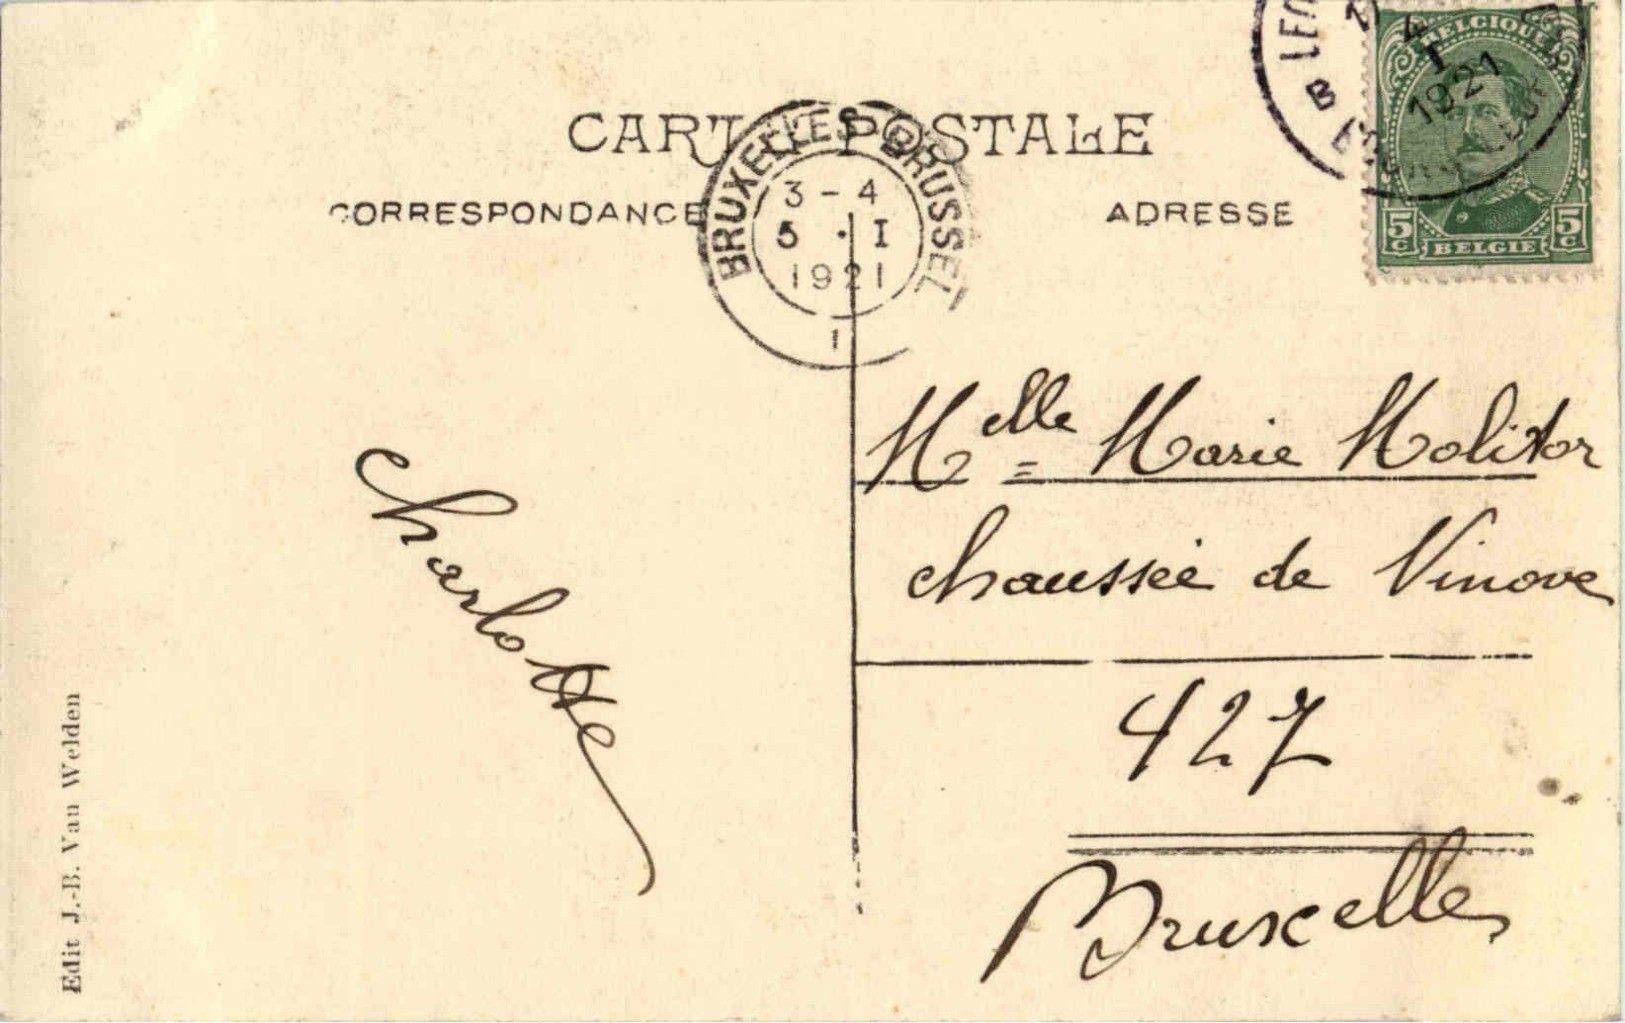 CARTE POSTALE
CORRESPONDANCE
ADRESSE
BRUXELLES BRUSSEL
3 - 4
5 · I
1921
1
4
I
1921
B
BELGIQUE
5c BELGIE 5c
Melle Marie Molitor
chaussée de Ninove
427
Bruxelles
Charlotte
Edit J.-B. Van Welden